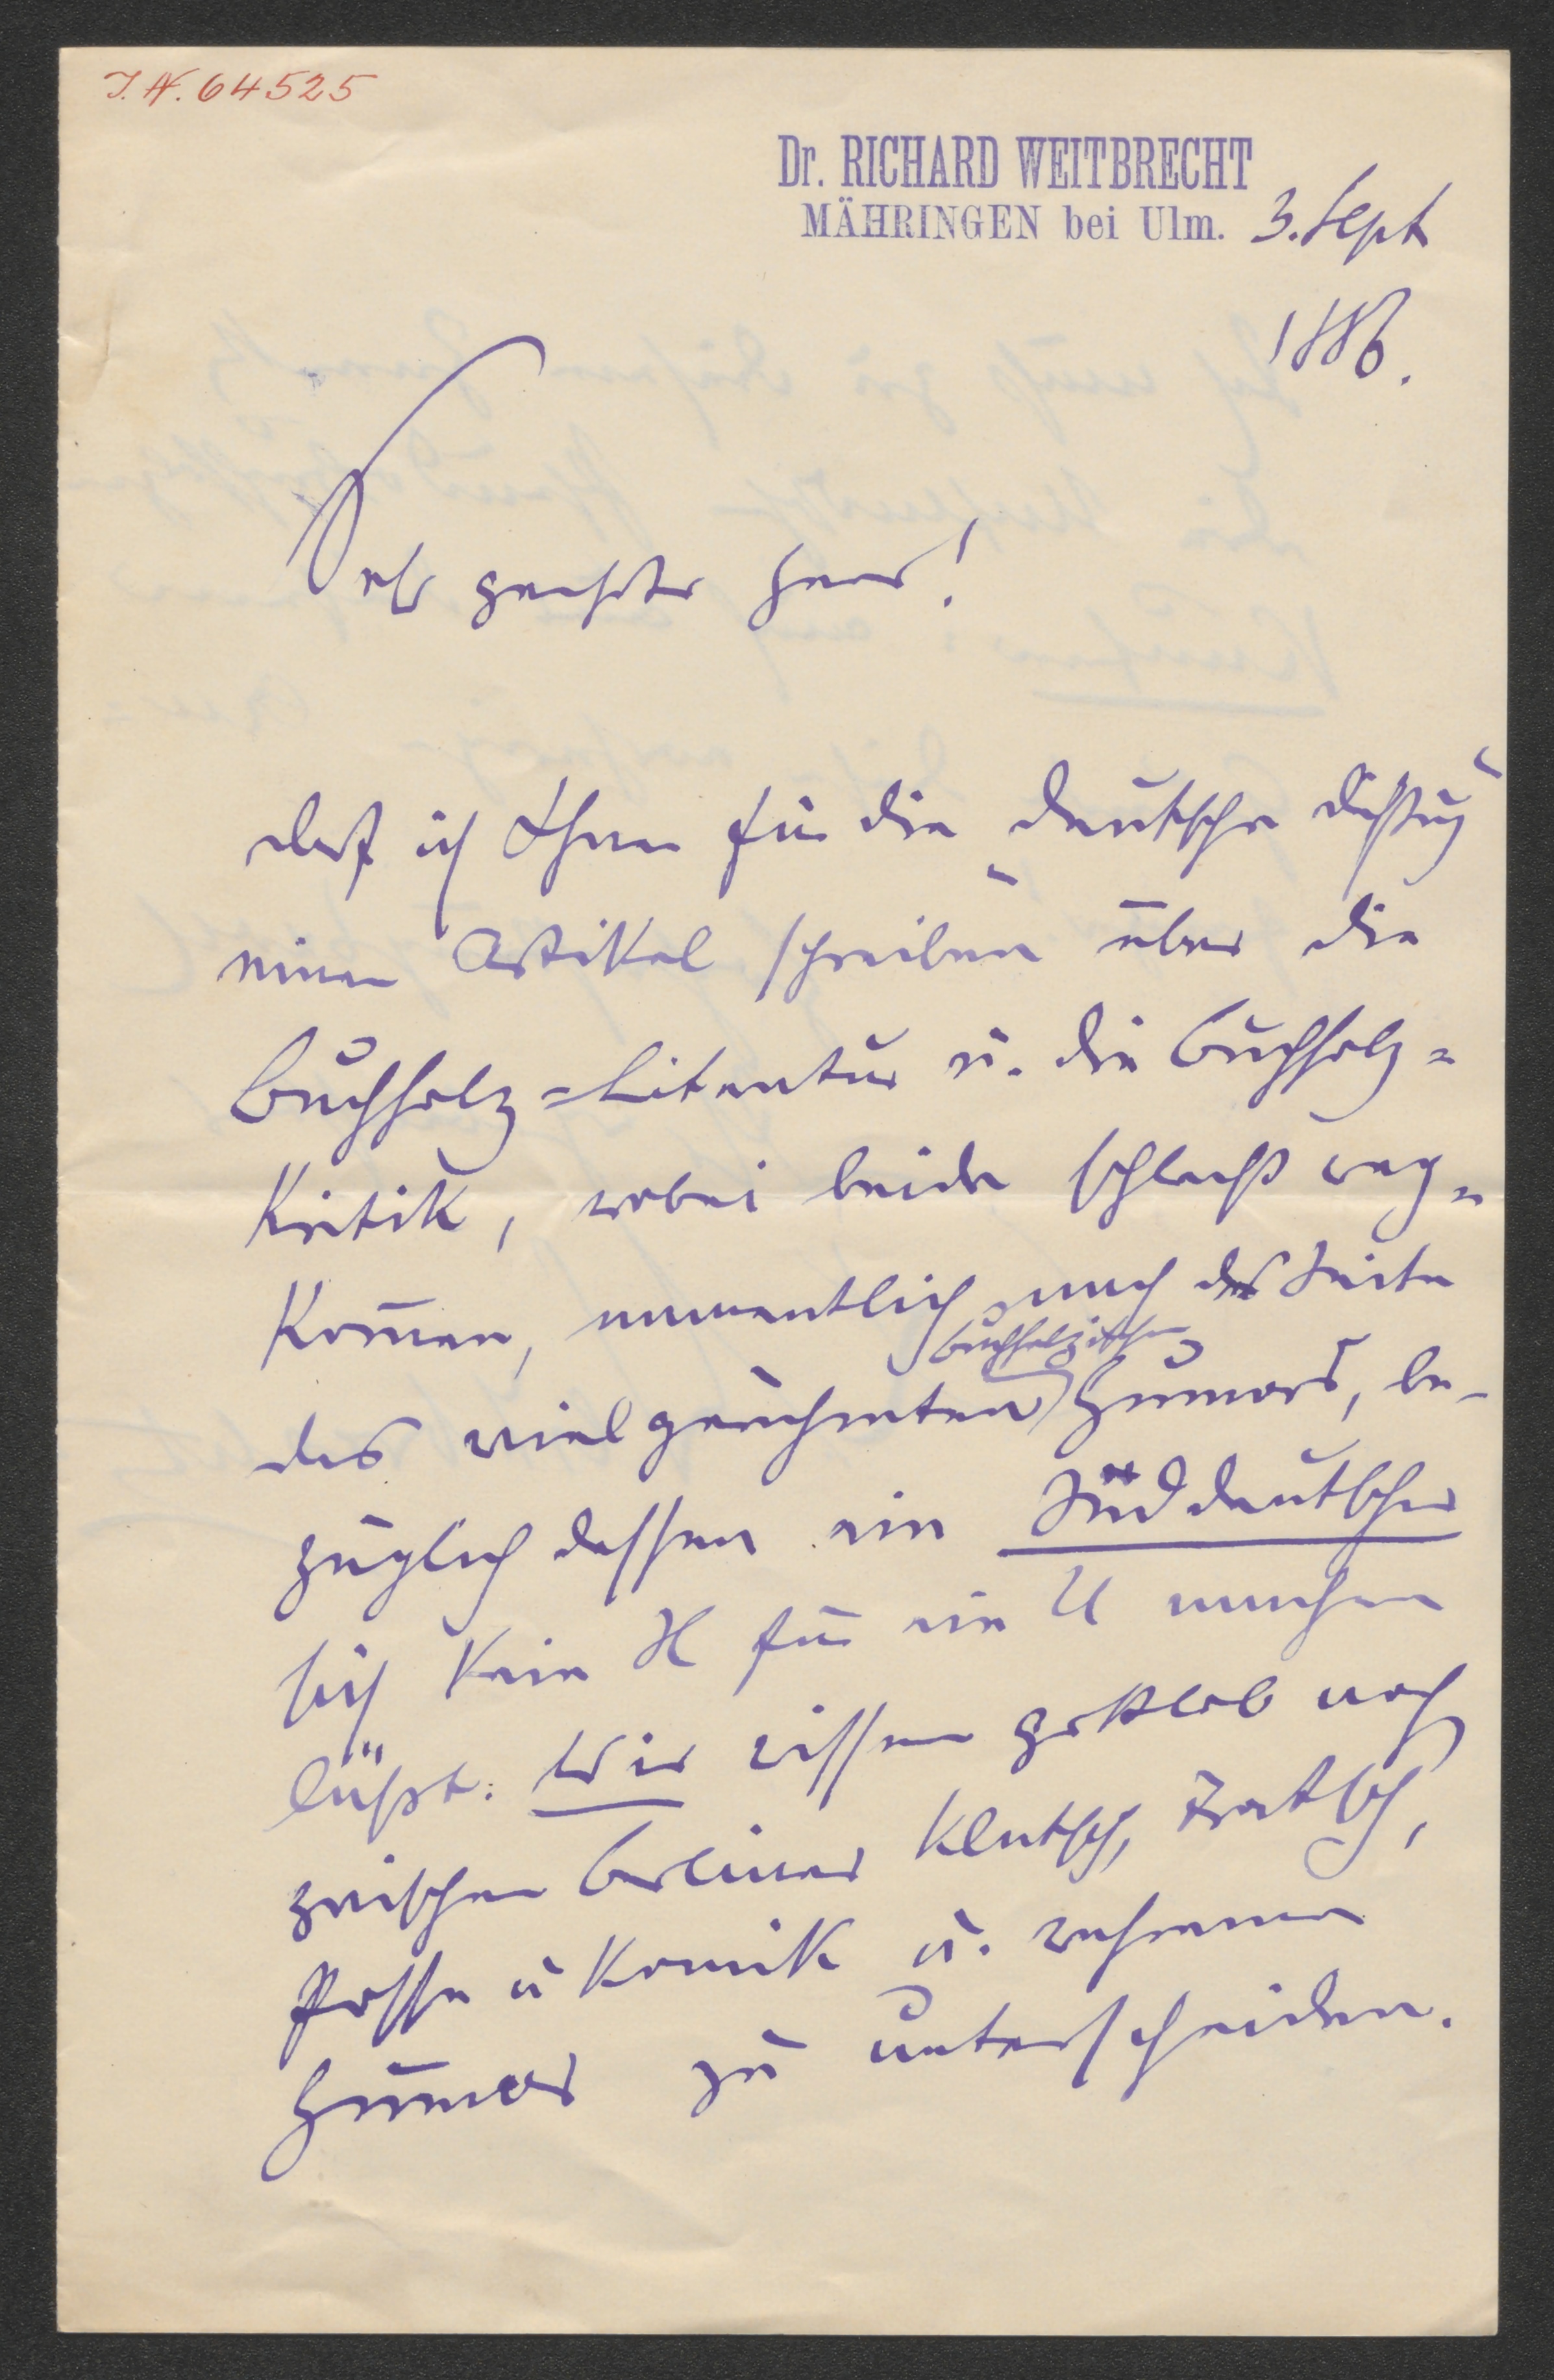 I. N. 64525
Dr. RICHARD WEITBRECHT
MÄHRINGEN bei Ulm. 3. Sept
1886.
Sehr geehrter Herr!
Darf ich Ihnen für die „Deutsche Dichtung“
einen Artikel schreiben über die
Buchholz=Literatur u. die Buchholz=
Kritik, wobei beide schlecht weg=
kom̄en, namentlich nach der Seite
des vielgerühmten Buchholzischen Humors, be-
züglich dessen ein Süddeutscher
sich kein X für ein U machen
läßt: Wir wissen gottlob noch
zwischen Berliner Klatsch, Tratsch,
Posse u Komik u. wahrem
Humor zu unterscheiden.